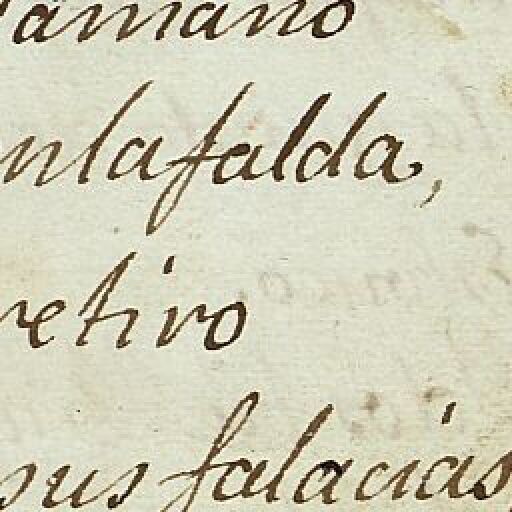 tamano
nlafalda,
retiro
sus falacias